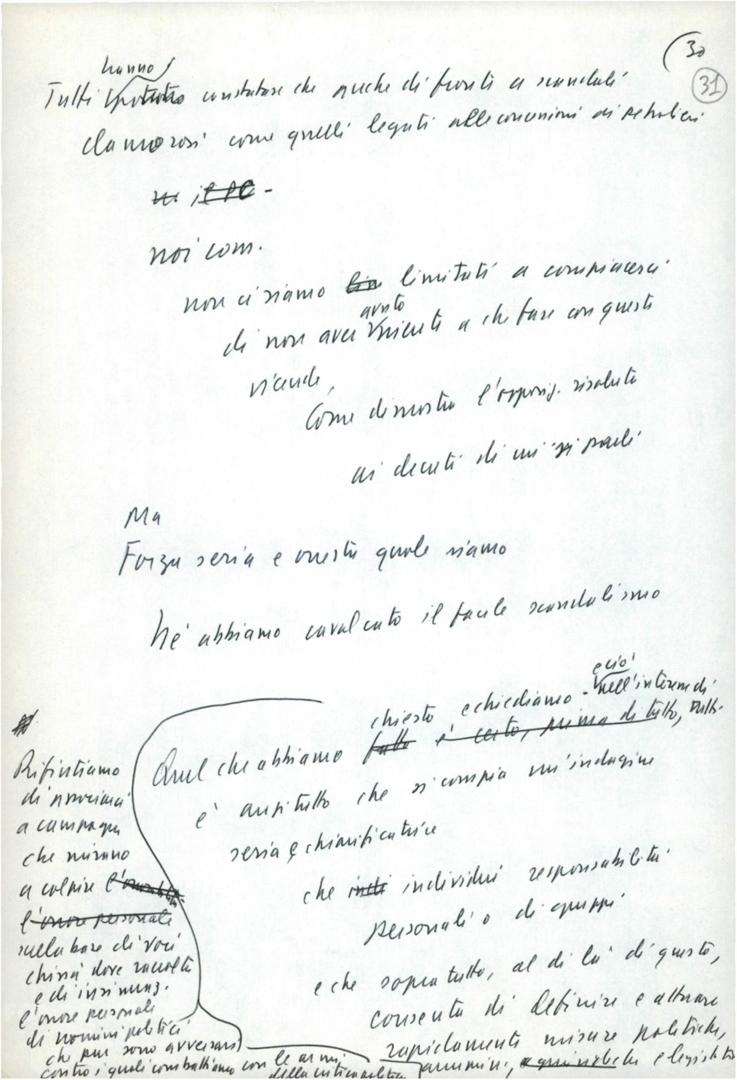 (30
31
hanno
Tutti potuto constatare che anche di fronte a scandali
clamorosi come quelli legati alle concessioni ai petrolieri
il PC -
noi com.
non ci siamo limitati a compiacerci
avuto
di non aver niente a che fare con queste
vicende,
Come dimostra l'opposiz. risoluta
ai decreti di cui si parla
Ma
Forza seria e onesta quale siamo
Né abbiamo cavalcato il facile scandalismo
e ciò
chiesto e chiediamo - nell'interesse di
Quel che abbiamo fatto è certo, prima di tutto, tutti -
è anzitutto che si compia un'indagine
seria e chiarificatrice
che individui responsabilità
personali o di gruppi
e che sopratutto, al di là di questo,
consenta di definire e attuare
rapidamente misure politiche,
ammin., e legislat
Rifiutiamo
di associarci
a campagne
che mirano
a colpire
l'onore personale
sulla base di voci
chissà dove raccolte
e di insinuaz.
l'onore personale
di uomini politici
che pur sono avversari
contro i quali combattiamo con le armi
della critica politica